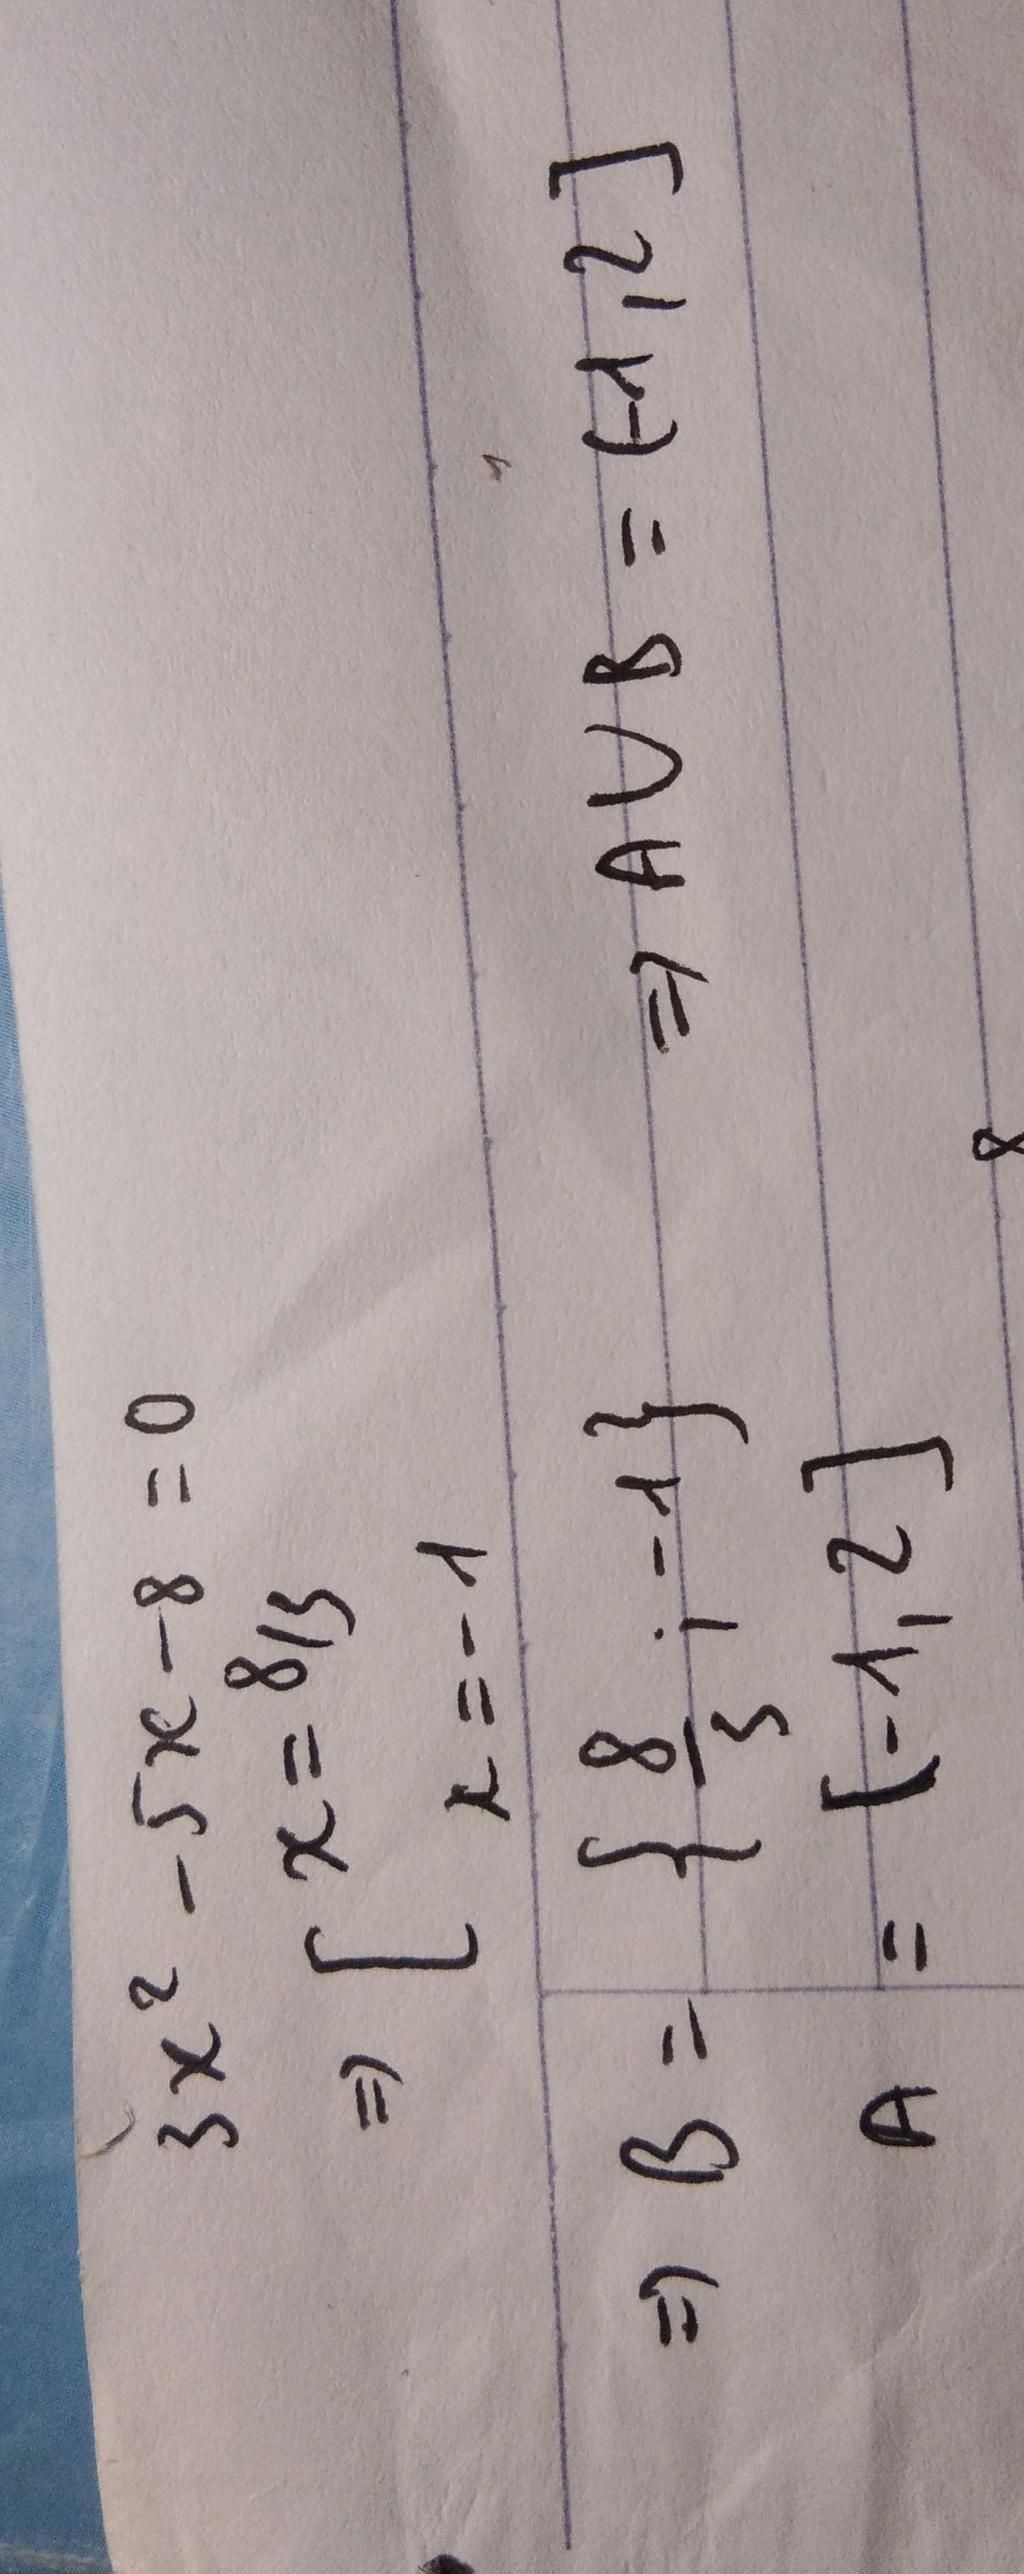 3x² - 5x - 8 = 0
⇒ [ x = 8/3
x = -1
⇒ B = { 8/3 ; -1 } ⇒ A ∪ B = (-1, 2]
A = (-1, 2]
8